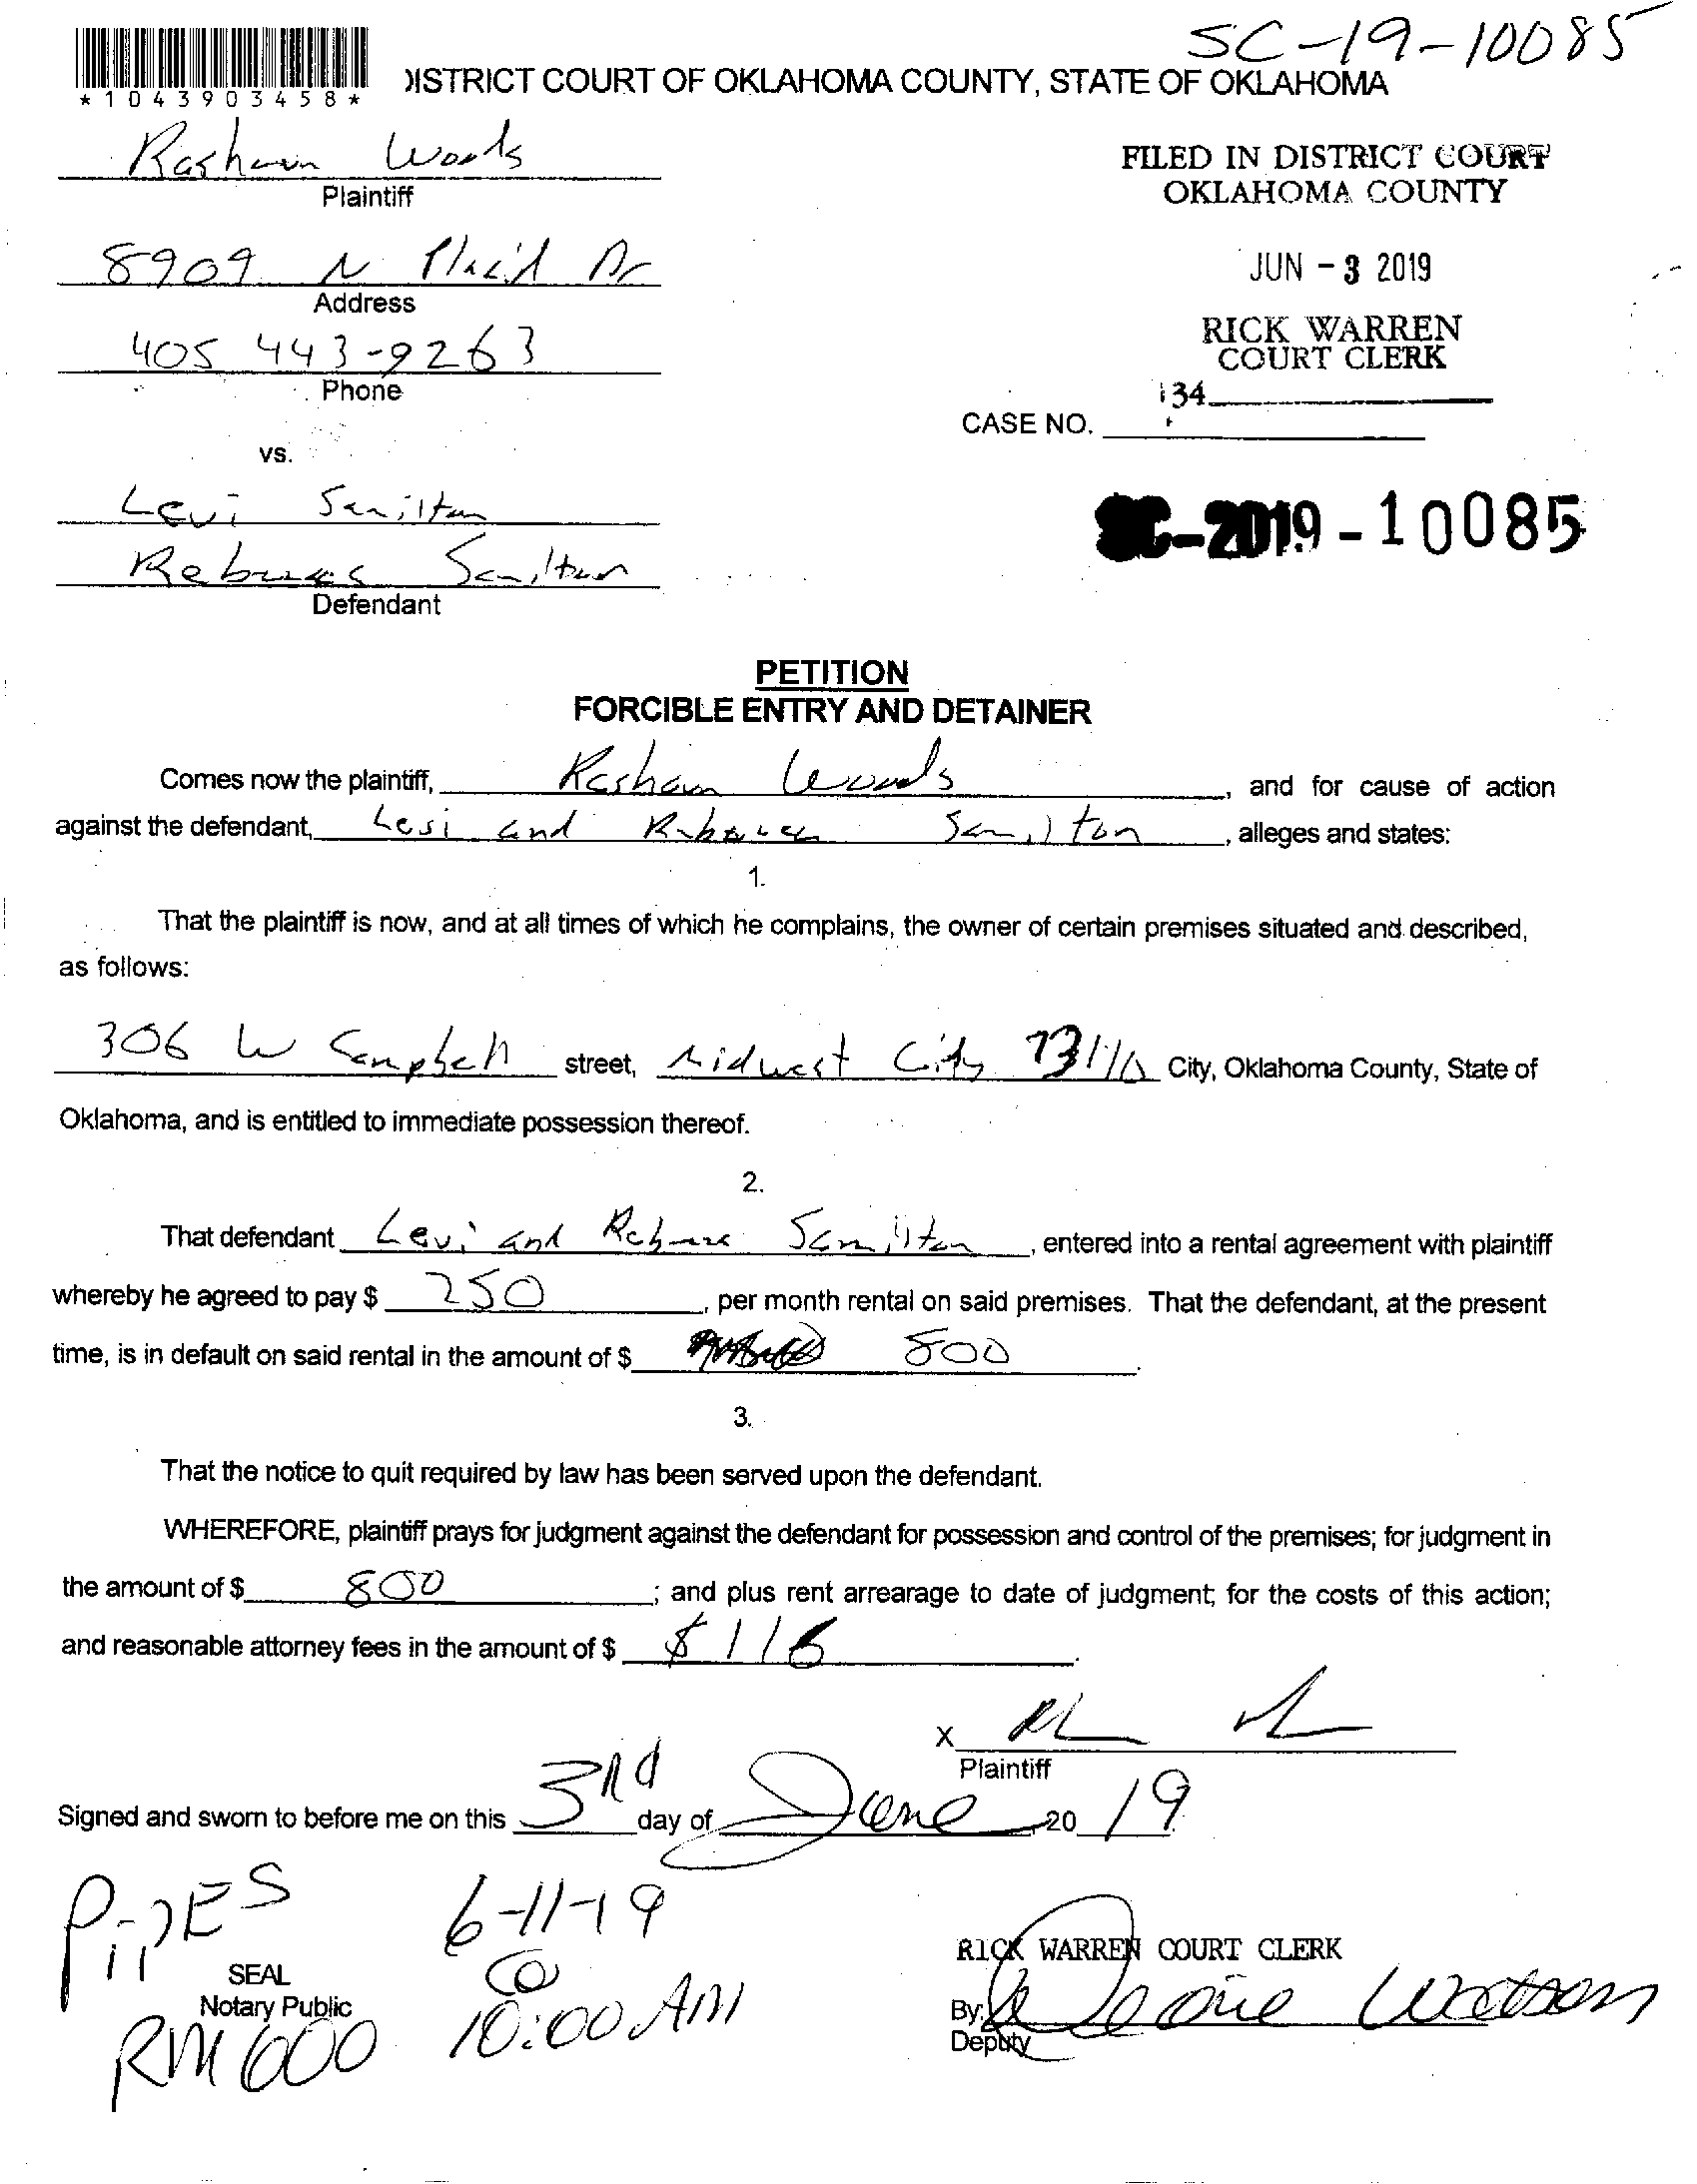 SC-19-10085
*1043903458*
DISTRICT COURT OF OKLAHOMA COUNTY, STATE OF OKLAHOMA
Rashaun Woods
Plaintiff
FILED IN DISTRICT COURT
OKLAHOMA COUNTY
8909 N Placid Dr
Address
JUN - 3 2019
405 443-9263
Phone
RICK WARREN
COURT CLERK
34
CASE NO.
vs.
Levi Samilton
SC-2019-10085
Samilton
Defendant
PETITION
FORCIBLE ENTRY AND DETAINER
Comes now the plaintiff, Rashaun Woods, and for cause of action
against the defendant, Levi and Samilton, alleges and states:
1.
That the plaintiff is now, and at all times of which he complains, the owner of certain premises situated and described,
as follows:
306 W Campbell street, Midwest City 73110 City, Oklahoma County, State of
Oklahoma, and is entitled to immediate possession thereof.
2.
That defendant Levi and Samilton, entered into a rental agreement with plaintiff
whereby he agreed to pay $ 250, per month rental on said premises. That the defendant, at the present
time, is in default on said rental in the amount of $ 800.
3.
That the notice to quit required by law has been served upon the defendant.
WHEREFORE, plaintiff prays for judgment against the defendant for possession and control of the premises; for judgment in
the amount of $ 800; and plus rent arrearage to date of judgment; for the costs of this action;
and reasonable attorney fees in the amount of $ $116.
X
Plaintiff
Signed and sworn to before me on this 3rd day of June, 20 19.
PIPES 6-11-19
@
SEAL
Notary Public
RM 600 10:00 AM
RICK WARREN COURT CLERK
By: Watson
Deputy